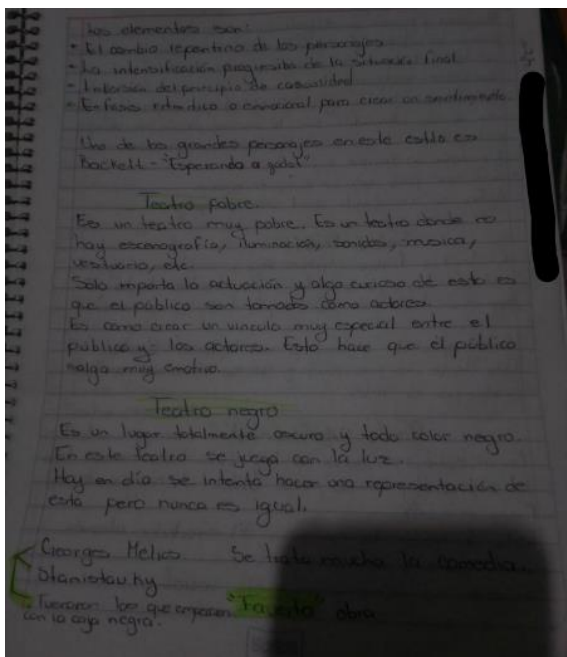 Los elementos son:
- El cambio repentino de los personajes
- La intensificación progresiva de la situación final
- Inversión del principio de casualidad
- Enfasis ritmico o emocional para crear un sentimiento.
Uno de los grandes personajes en este estilo es
Backett - "Esperando a godot"
Teatro pobre.
Es un teatro muy pobre. Es un teatro donde no
hay escenografía, iluminación, sonidos, musica,
vestuario, etc.
Solo importa la actuación y algo curioso de esto es
que el público son tomados como actores.
Es como crear un vinculo muy especial entre el
público y los actores. Esto hace que el público
salga muy emotivo.
Teatro negro
Es un lugar totalmente oscuro y todo color negro.
En este teatro se juega con la luz.
Hay en día se intenta hacer una representación de
esta pero nunca es igual.
Georges Melies Se trata mucha la comedia.
Stanislavky
Fueron los que empiesen "Fausto" obra
con la caja negra.